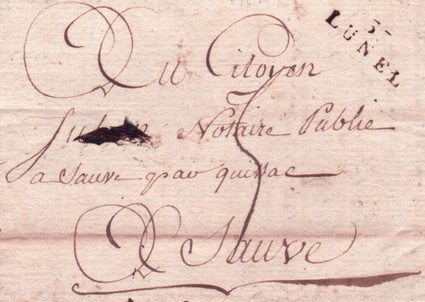 32
LUNEL
Au Citoyen
Notaire Public
a Sauve par quissac
5
A Sauve